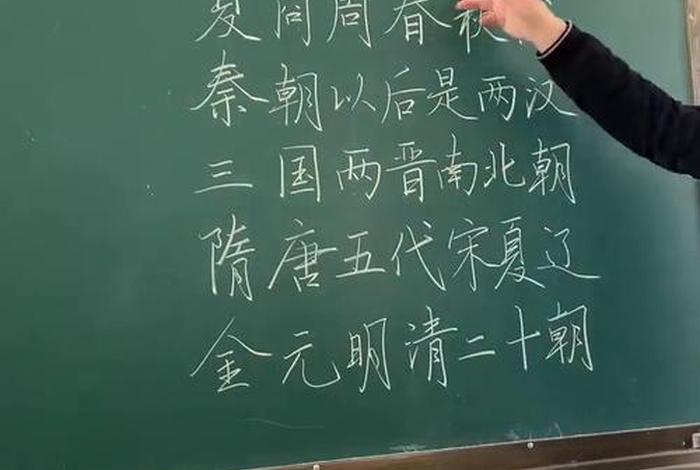 夏商周春秋
秦朝以后是两汉
三国两晋南北朝
隋唐五代宋夏辽
金元明清二十朝